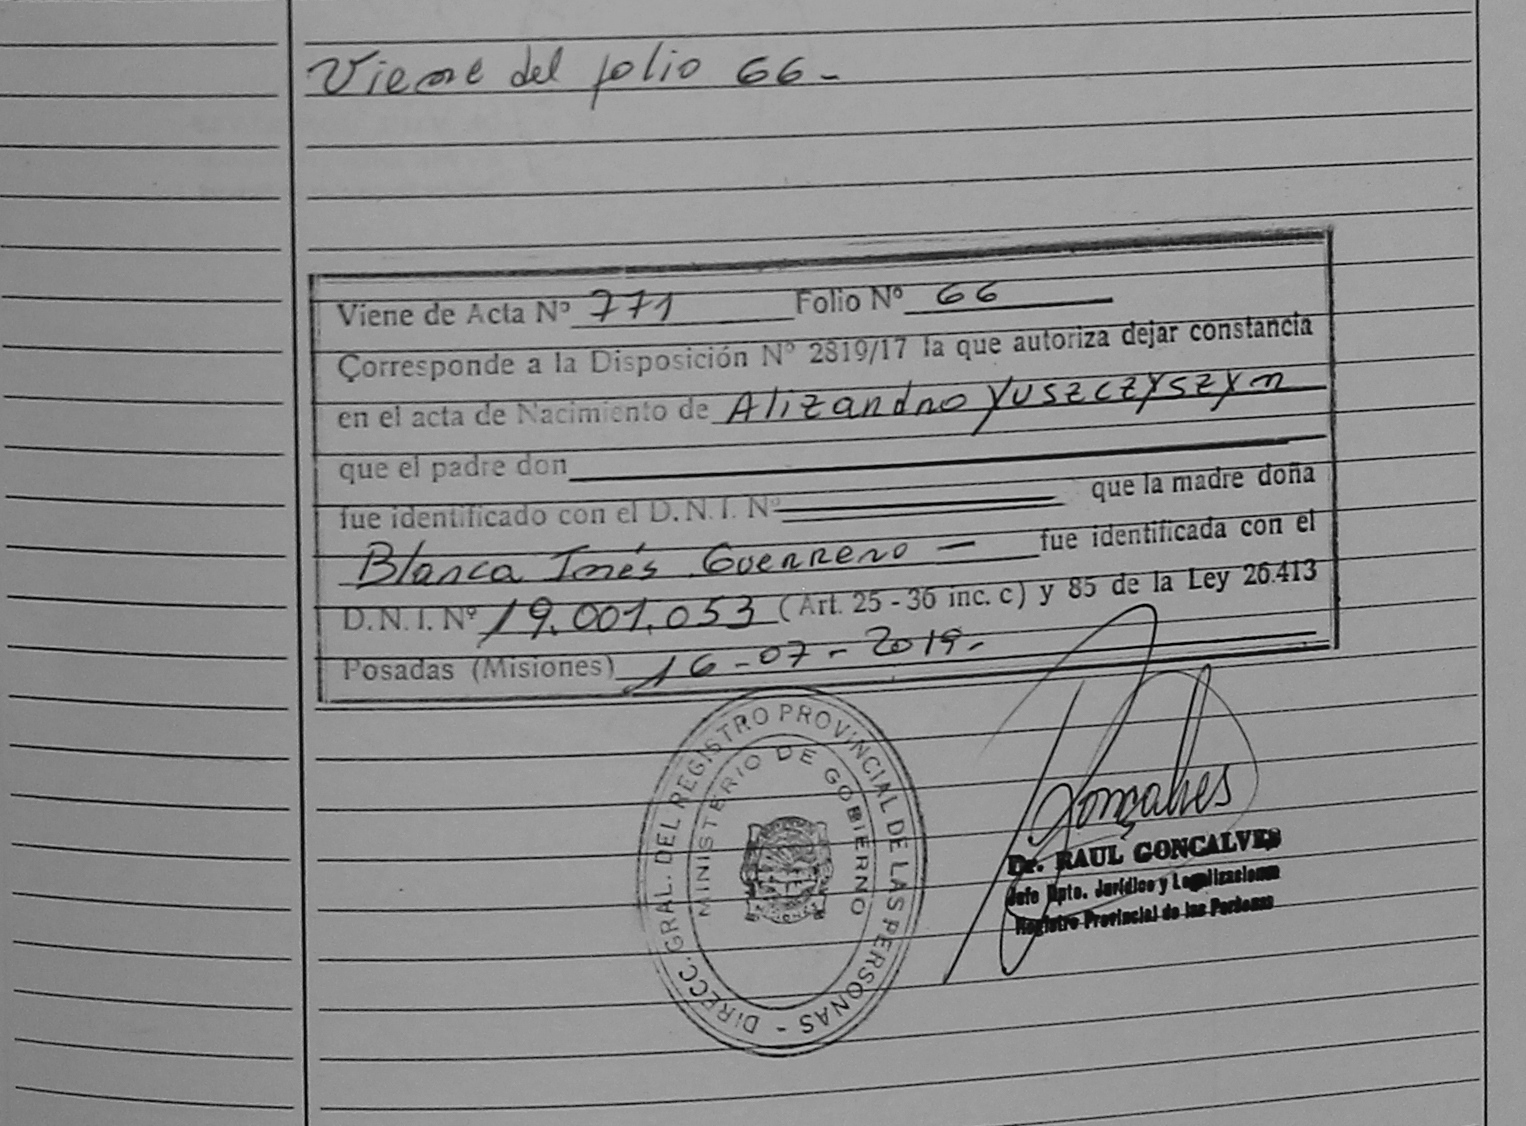 Viene del folio 66-
Viene de Acta Nº 771 Folio Nº 66
Corresponde a la Disposición Nº 2819/17 la que autoriza dejar constancia
en el acta de Nacimiento de Alizandro Yuszczyszyn
que el padre don
fue identificado con el D.N.I. Nº que la madre doña
Blanca Inés Guerrero — fue identificada con el
D.N.I. Nº 19.001.053 (Art. 25 - 36 inc. c) y 85 de la Ley 26.413
Posadas (Misiones) 16-07-2019.
DIRECC. GRAL. DEL REGISTRO PROVINCIAL DE LAS PERSONAS -
MINISTERIO DE GOBIERNO
MISIONES
Gonçalves
Dr. RAUL GONCALVES
Jefe Dpto. Jurídico y Legalizaciones
Registro Provincial de las Personas